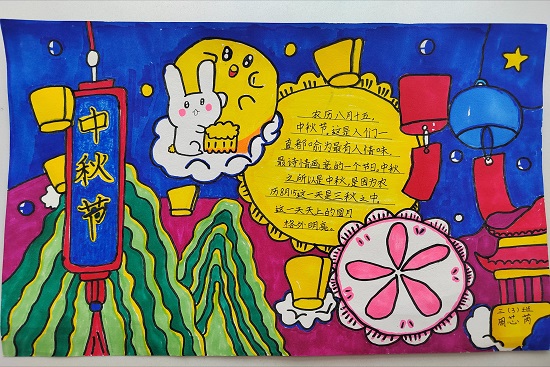 中秋节
农历八月十五，
中秋节，这是人们一
直都喻为最有人情味，
最诗情画意的一个节日，中秋
之所以是中秋，是因为农
历8月15这一天是三秋之中，
这一天天上的圆月
格外明亮。
三（3）班
周芯芮